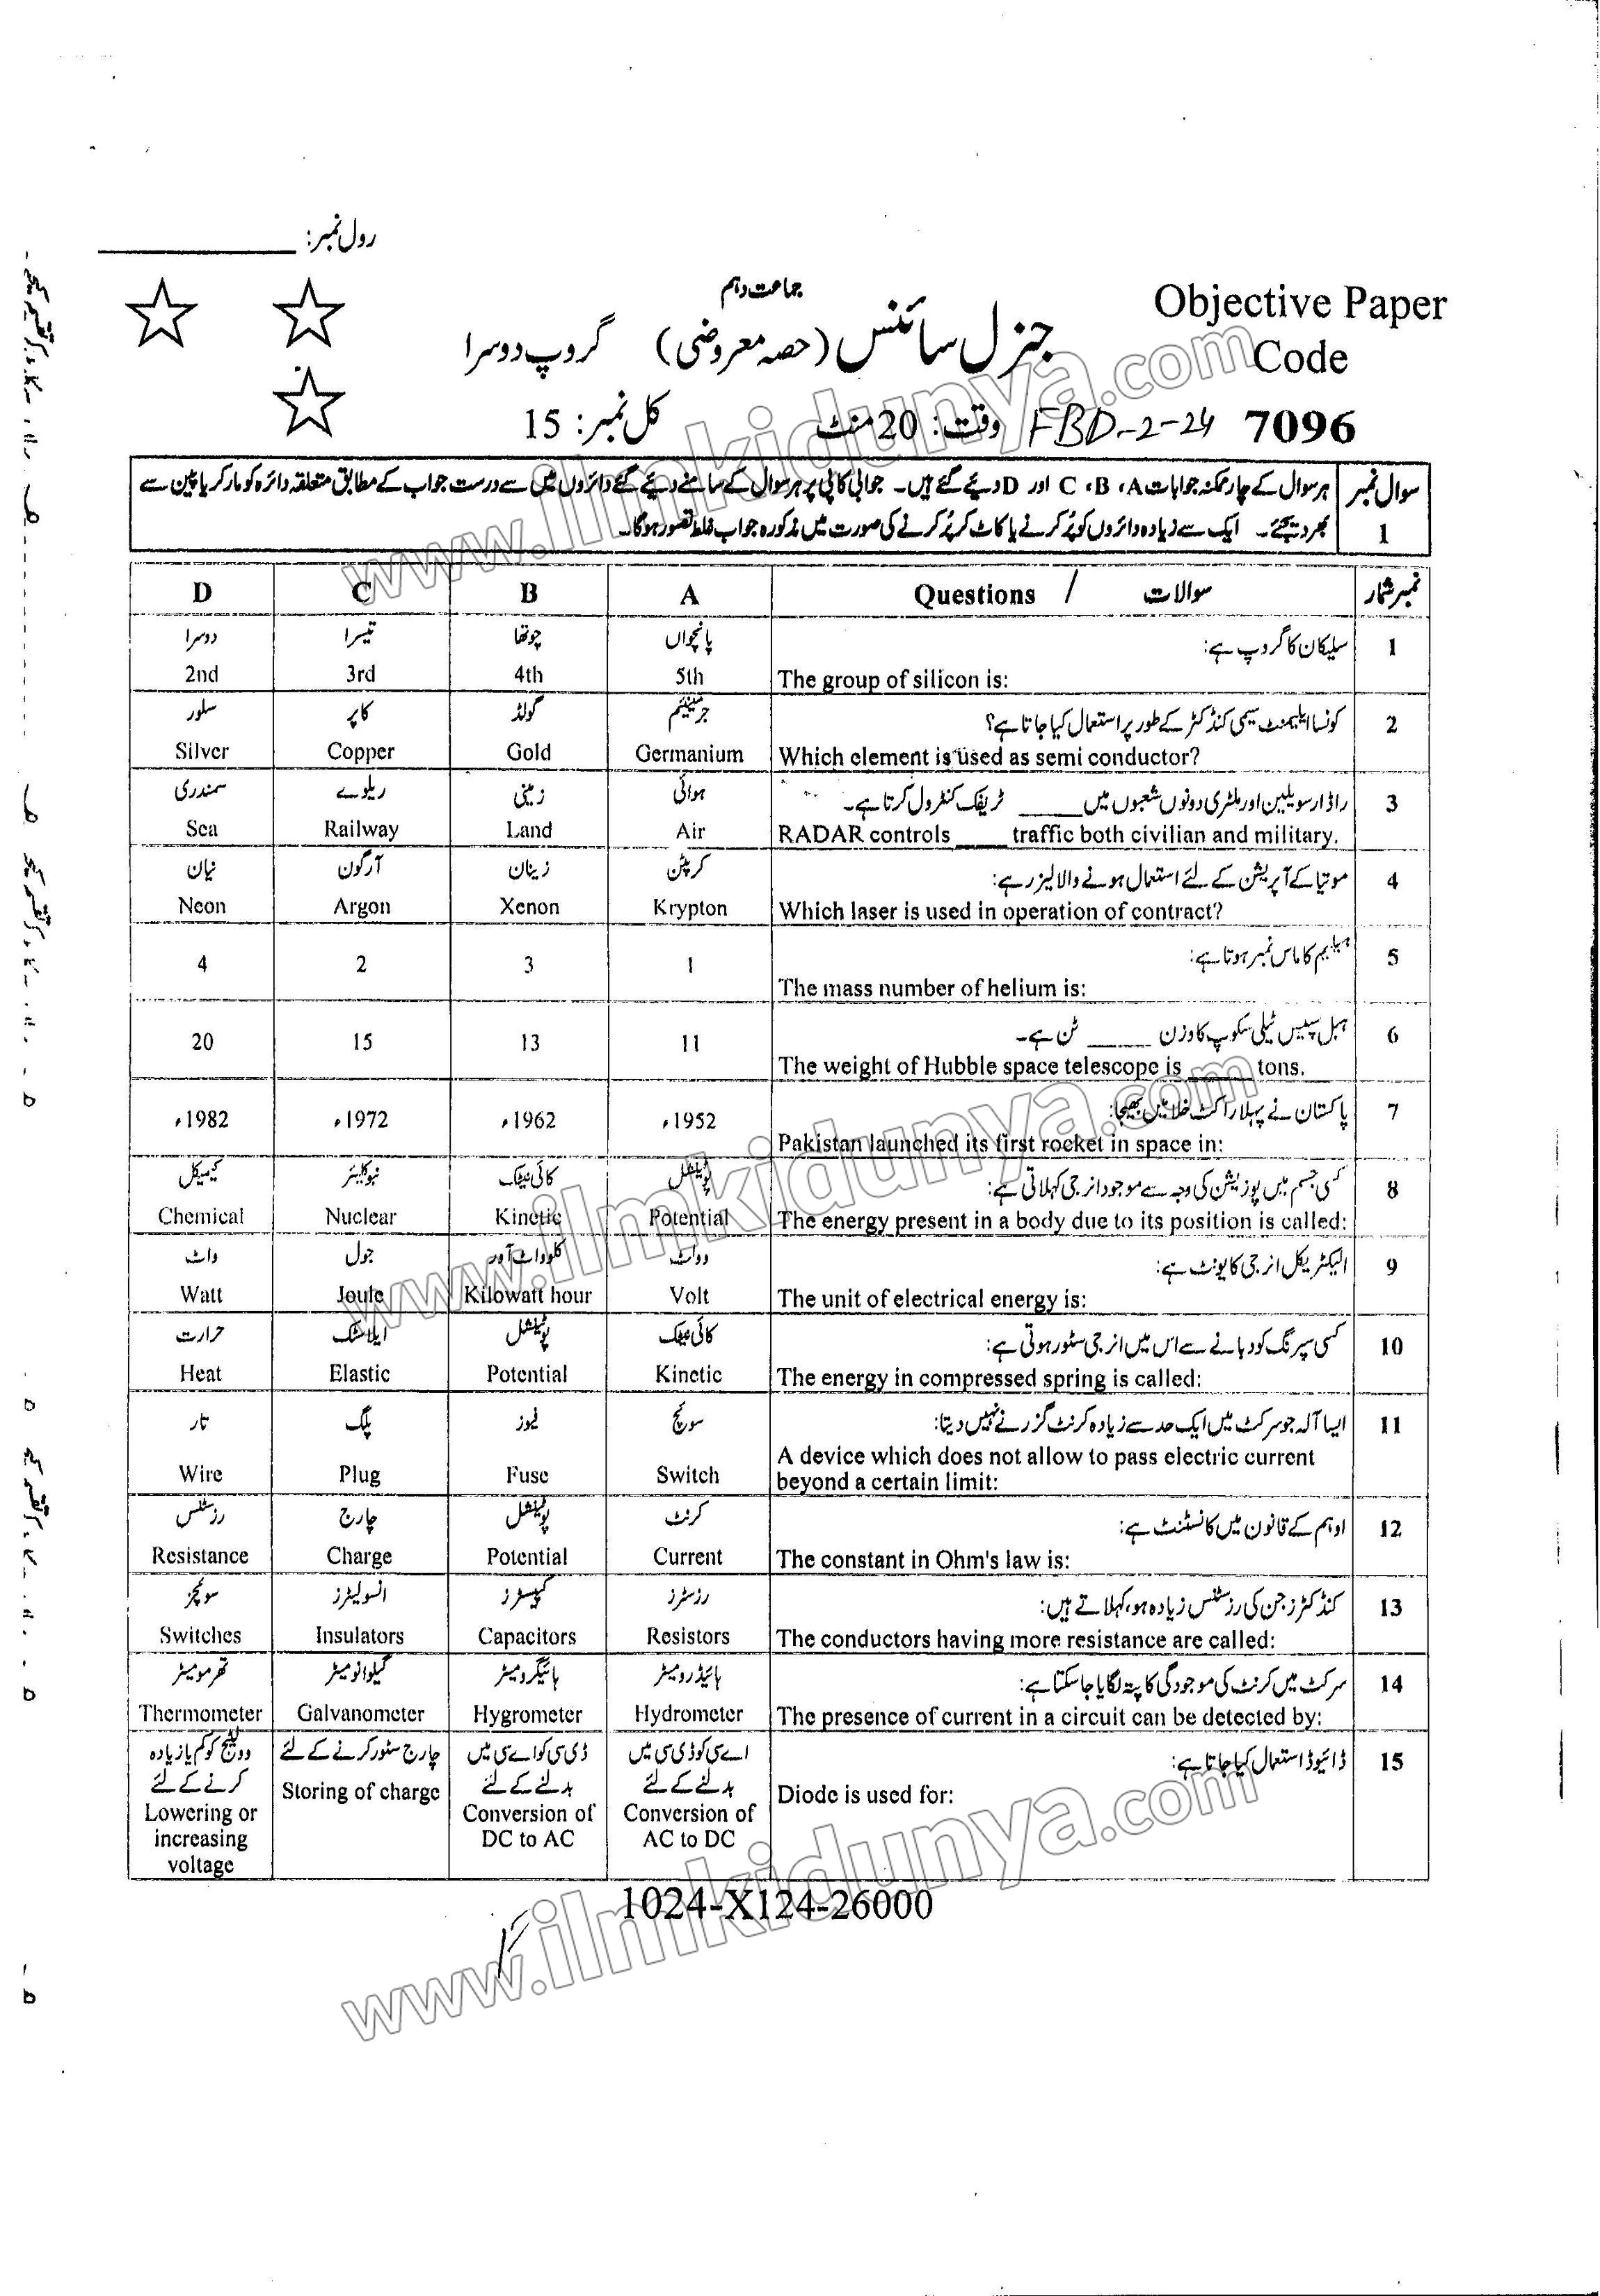 رول نمبر:
جماعت دہم
Objective Paper
Code
جنرل سائنس (حصہ معروضی) گروپ دوسرا
7096
FBD-2-24
وقت: 20 منٹ
کل نمبر: 15
سوال نمبر 1
ہر سوال کے چار ممکنہ جوابات A، B، C اور D دیئے گئے ہیں۔ جوابی کاپی پر ہر سوال کے سامنے دیئے گئے دائروں میں سے درست جواب کے مطابق متعلقہ دائرہ کو مارکر یا پین سے
بھر دیجئے۔ ایک سے زیادہ دائروں کو پُر کرنے یا کاٹ کر پُر کرنے کی صورت میں مذکورہ جواب غلط تصور ہوگا۔
نمبر شمار سوالات / Questions A B C D
1 سلیکان کا گروپ ہے:
پانچواں چوتھا تیسرا دوسرا
The group of silicon is: 5th 4th 3rd 2nd
2 کونسا ایلیمنٹ سیمی کنڈکٹر کے طور پر استعمال کیا جاتا ہے؟
جرمینیم گولڈ کاپر سلور
Which element is used as semi conductor? Germanium Gold Copper Silver
3 راڈار سویلین اور ملٹری دونوں شعبوں میں _____ ٹریفک کنٹرول کرتا ہے۔
ہوائی زمینی ریلوے سمندری
RADAR controls _____ traffic both civilian and military. Air Land Railway Sea
4 موتیا کے آپریشن کے لئے استعمال ہونے والا لیزر ہے:
کرپٹن زینان آرگون نیان
Which laser is used in operation of contract? Krypton Xenon Argon Neon
5 ہیلیم کا ماس نمبر ہوتا ہے:
The mass number of helium is: 1 3 2 4
6 ہبل سپیس ٹیلی سکوپ کا وزن _____ ٹن ہے۔
The weight of Hubble space telescope is _____ tons. 11 13 15 20
7 پاکستان نے پہلا راکٹ خلا میں بھیجا:
Pakistan launched its first rocket in space in: 1952ء 1962ء 1972ء 1982ء
8 کسی جسم میں پوزیشن کی وجہ سے موجود انرجی کہلاتی ہے:
پوٹینشل کائی نیٹک نیوکلیئر کیمیکل
The energy present in a body due to its position is called: Potential Kinetic Nuclear Chemical
9 الیکٹریکل انرجی کا یونٹ ہے:
وولٹ کلوواٹ آور جول واٹ
The unit of electrical energy is: Volt Kilowatt hour Joule Watt
10 کسی سپرنگ کو دبانے سے اس میں انرجی سٹور ہوتی ہے:
کائی نیٹک پوٹینشل ایلاسٹک حرارت
The energy in compressed spring is called: Kinetic Potential Elastic Heat
11 ایسا آلہ جو سرکٹ میں ایک حد سے زیادہ کرنٹ گزرنے نہیں دیتا:
سوئچ فیوز پلگ تار
A device which does not allow to pass electric current
beyond a certain limit: Switch Fuse Plug Wire
12 اوہم کے قانون میں کانسٹنٹ ہے:
کرنٹ پوٹینشل چارج رزسٹنس
The constant in Ohm's law is: Current Potential Charge Resistance
13 کنڈکٹرز جن کی رزسٹنس زیادہ ہو، کہلاتے ہیں:
رزسٹرز کپیسٹرز انسولیٹرز سوئچز
The conductors having more resistance are called: Resistors Capacitors Insulators Switches
14 سرکٹ میں کرنٹ کی موجودگی کا پتہ لگایا جا سکتا ہے:
ہائیڈرومیٹر ہائیگرومیٹر گیلوانومیٹر تھرمومیٹر
The presence of current in a circuit can be detected by: Hydrometer Hygrometer Galvanometer Thermometer
15 ڈائیوڈ استعمال کیا جاتا ہے:
Diode is used for:
اے سی کو ڈی سی میں بدلنے کے لئے
Conversion of AC to DC
ڈی سی کو اے سی میں بدلنے کے لئے
Conversion of DC to AC
چارج سٹور کرنے کے لئے
Storing of charge
وولٹیج کو کم یا زیادہ کرنے کے لئے
Lowering or increasing voltage
1024-X124-26000
www.ilmkidunya.com
www.ilmkidunya.com
www.ilmkidunya.com